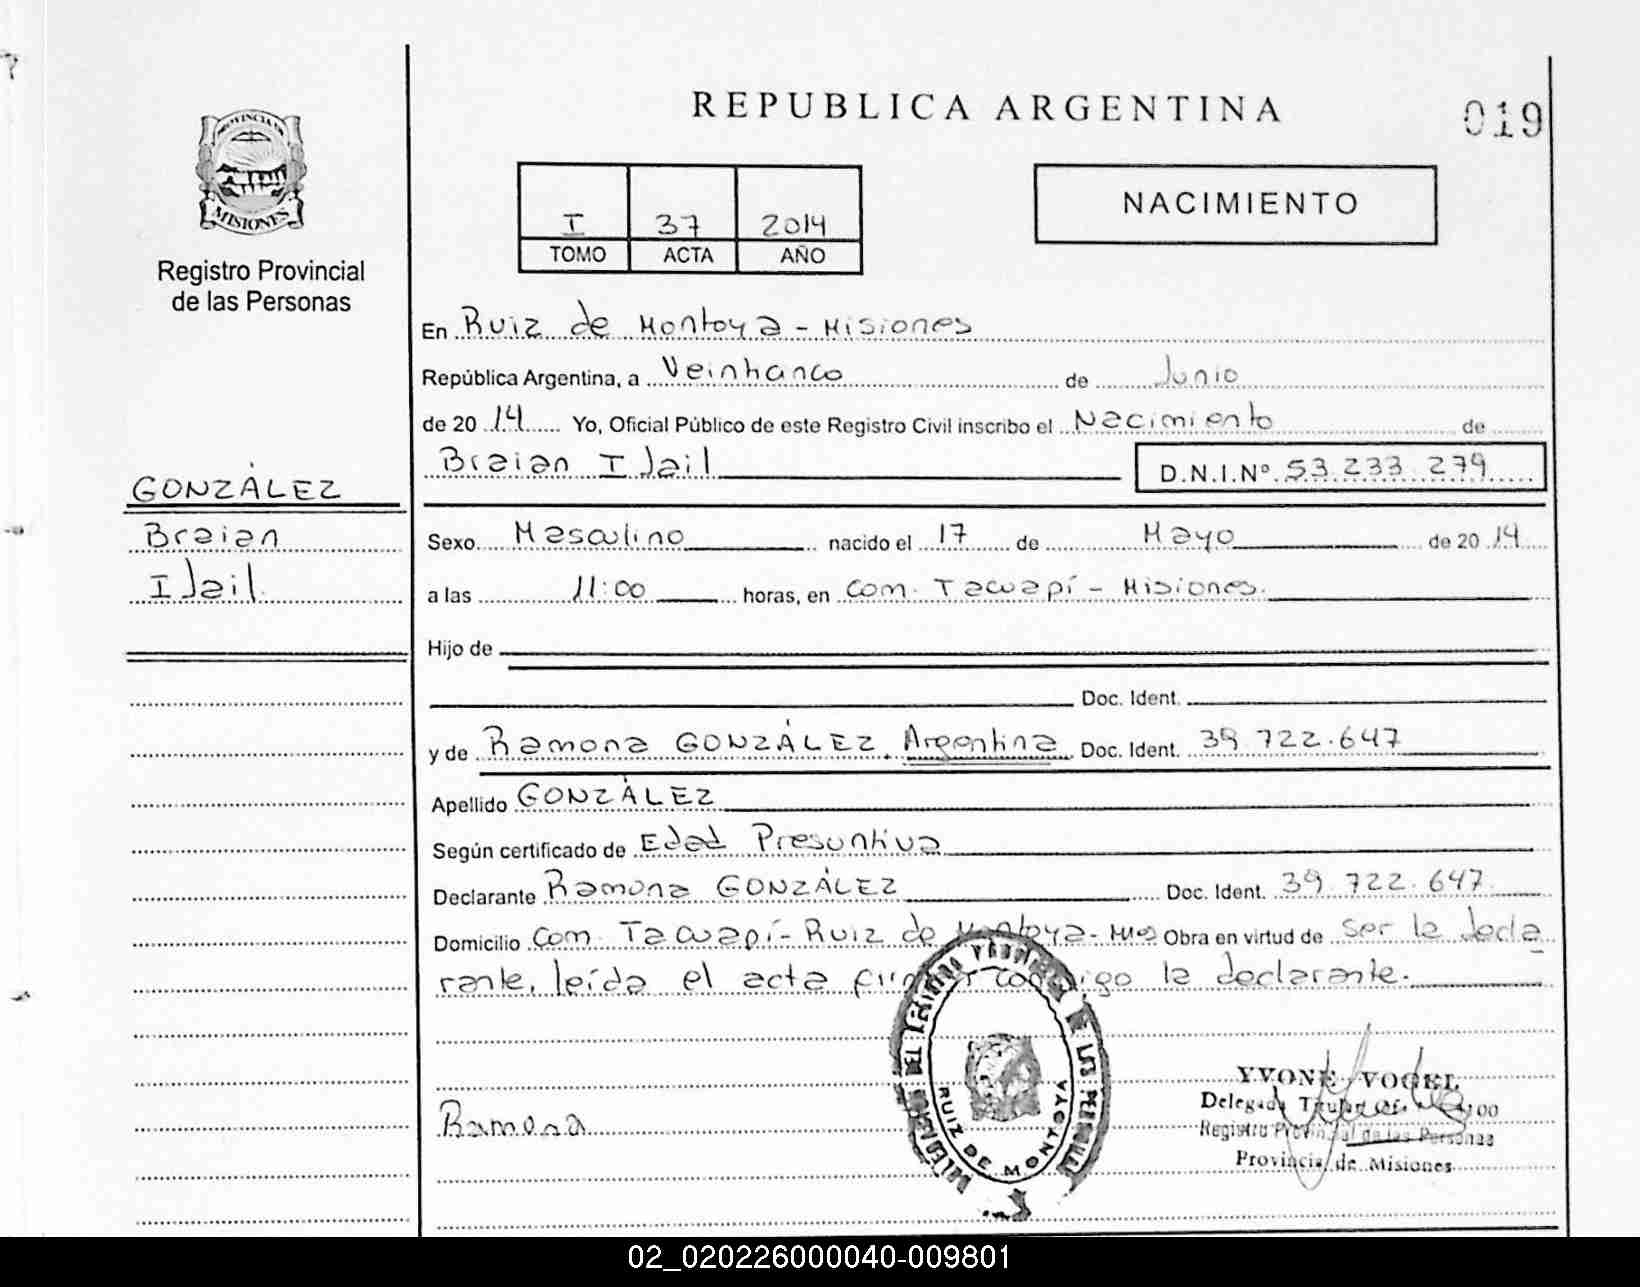 REPUBLICA ARGENTINA
019
PROVINCIA DE
MISIONES
Registro Provincial
de las Personas
I 37 2014
TOMO ACTA AÑO
NACIMIENTO
En Ruiz de Montoya - Misiones
República Argentina, a Veinticinco de Junio
de 20 14 Yo, Oficial Público de este Registro Civil inscribo el Nacimiento de
Braian Idail D.N.I.Nº 53.233.279
GONZÁLEZ
Braian
Idail
Sexo Masculino nacido el 17 de Mayo de 20 14
a las 11:00 horas, en Com. Tacuapí - Misiones.
Hijo de
Doc. Ident.
y de Ramona GONZÁLEZ, Argentina Doc. Ident. 39.722.647
Apellido GONZÁLEZ
Según certificado de Edad Presuntiva
Declarante Ramona GONZÁLEZ Doc. Ident. 39.722.647
Domicilio Com. Tacuapí - Ruiz de Montoya - Mnes Obra en virtud de Ser la decla
rante, leída el acta firma conmigo la declarante.
RUIZ DE MONTOYA
Ramona
YVONE VOGEL
Delegada Titular
Registro Provincial de las Personas
Provincia de Misiones
02_020226000040-009801